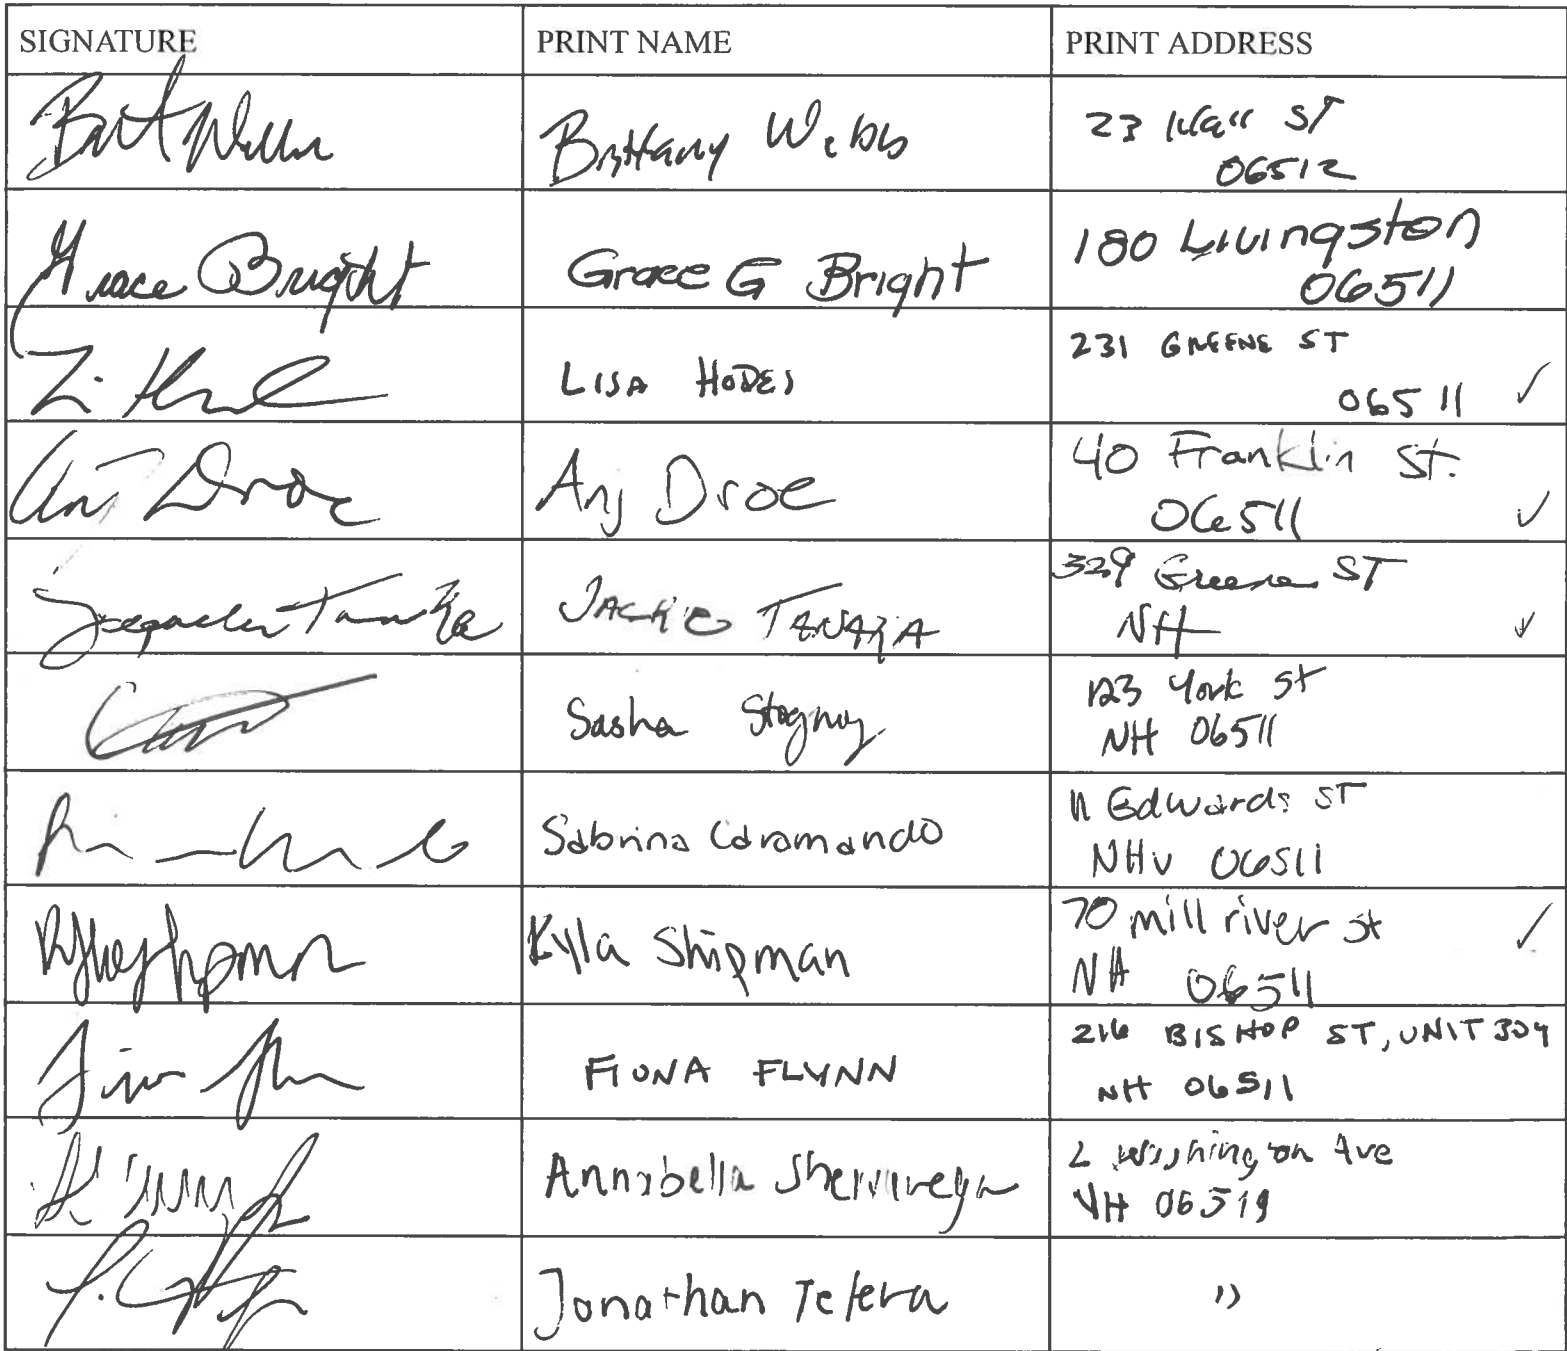 SIGNATURE PRINT NAME PRINT ADDRESS
Brittany Webb
23 Wall ST
06512
Grace Bright Grace G Bright
180 Livingston
06511
LISA HODES
231 GREENE ST
06511 ✓
Droe
Anj Droe
40 Franklin St.
06511 ✓
Tanaka
JACKIE TANAKA
329 Greene ST
NH ✓
Sasha Stognuy
123 York St
NH 06511
Sabrina Caramando
11 Edwards ST
NHV 06511
Kyla Shipman
70 mill river st ✓
NH 06511
FIONA FLYNN
216 BISHOP ST, UNIT 304
NH 06511
Annabella
2 Washington Ave
NH 06519
Jonathan Tefera
"